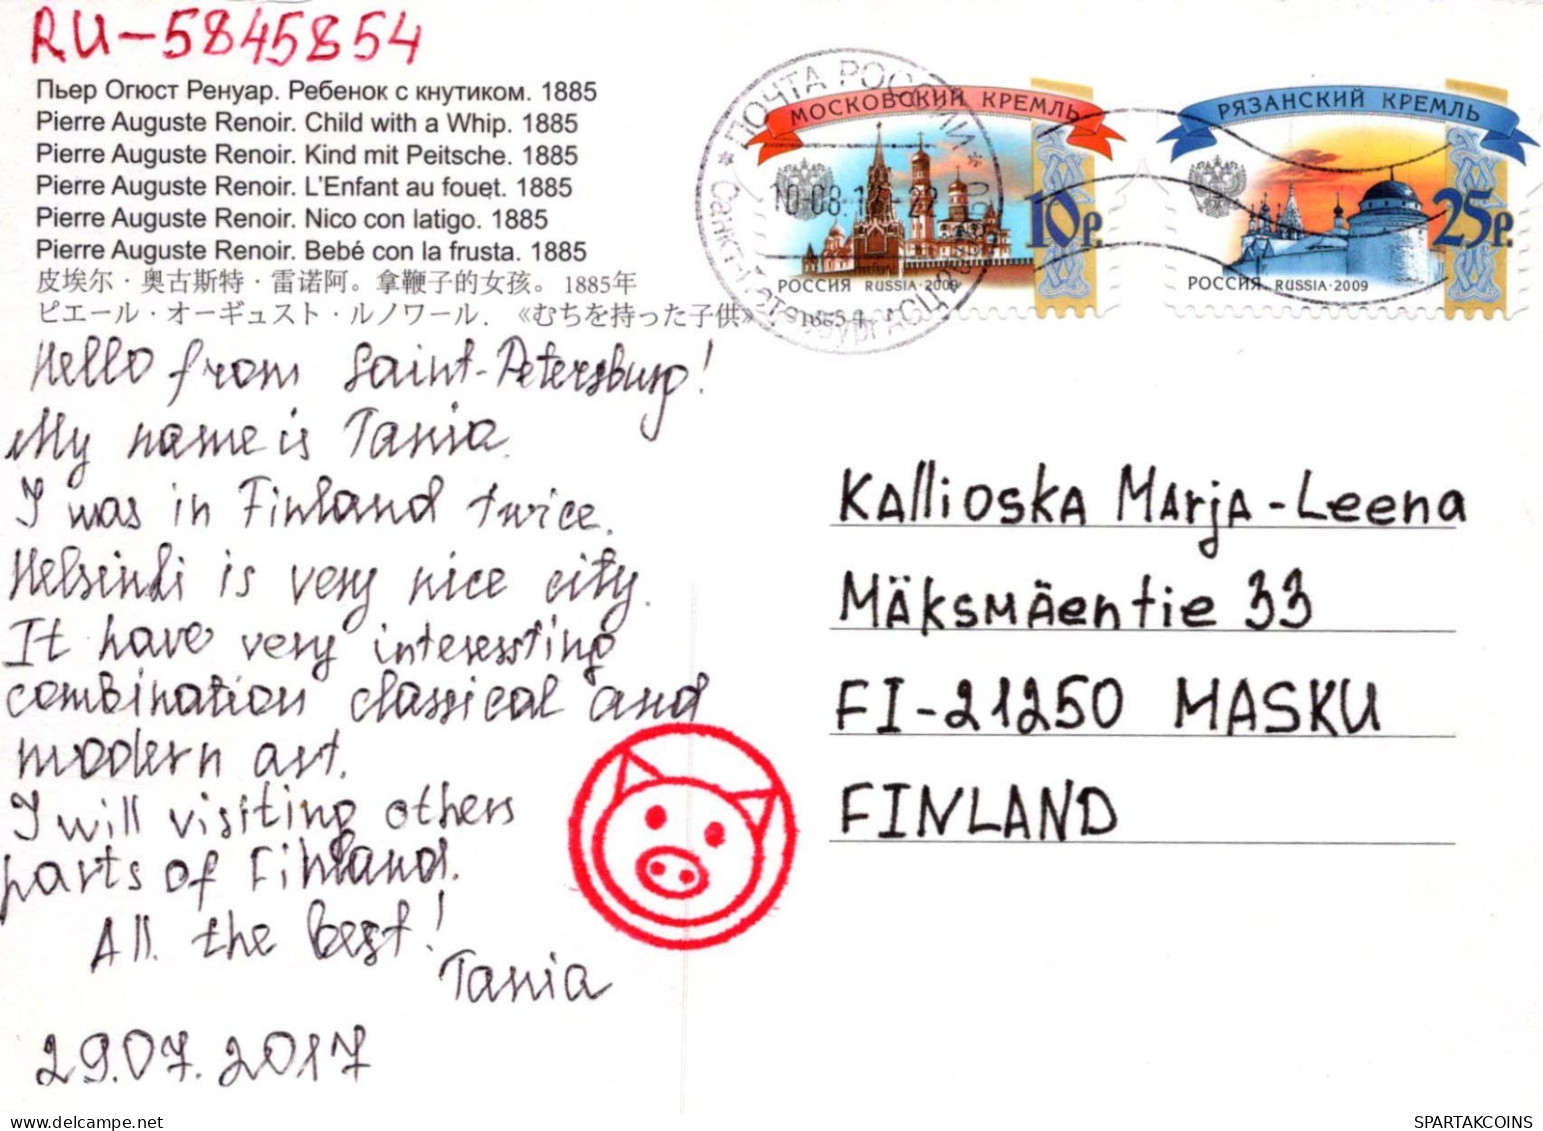 RU-5845854
Пьер Огюст Ренуар. Ребенок с кнутиком. 1885
Pierre Auguste Renoir. Child with a Whip. 1885
Pierre Auguste Renoir. Kind mit Peitsche. 1885
Pierre Auguste Renoir. L'Enfant au fouet. 1885
Pierre Auguste Renoir. Nico con latigo. 1885
Pierre Auguste Renoir. Bebé con la frusta. 1885
皮埃尔·奥古斯特·雷诺阿。拿鞭子的女孩。1885年
ピエール・オーギュスト・ルノワール. 《むちを持った子供》. 1885年
Hello from Saint-Petersburg!
My name is Tania.
I was in Finland twice.
Helsinki is very nice city.
It have very interessting
combination classical and
modern art.
I will visiting others
parts of Finland.
All the best!
Tania
29.07.2017
ПОЧТА РОССИИ
10-08.17-22
Санкт-Петербург АСЦ
МОСКОВСКИЙ КРЕМЛЬ
10р.
РОССИЯ RUSSIA·2009
РЯЗАНСКИЙ КРЕМЛЬ
25р.
РОССИЯ RUSSIA·2009
Kallioska Marja-Leena
Mäksmäentie 33
FI-21250 MASKU
FINLAND
SPARTAKCOINS